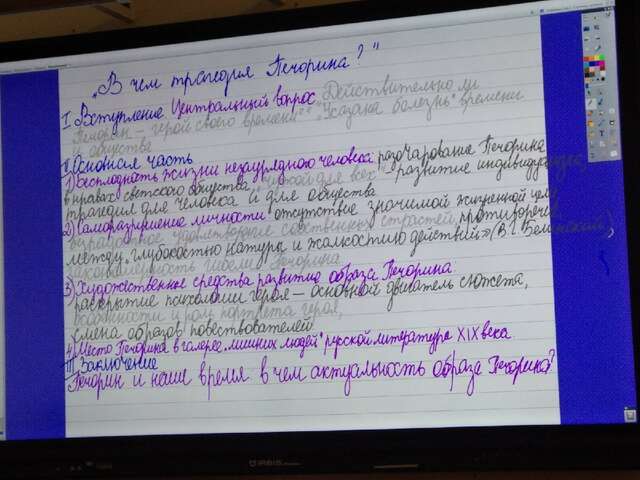 „В чем трагедия Печорина?"
I Вступление Центральный вопрос Действительно ли
Печорин – герой своего времени" "Указана болезнь" времени
и общества
II Основная часть
1) Бесплодность жизни незаурядного человека: разочарование Печорина
в нравах светского общества, "чужой для всех" развитие индивидуализма,
трагедия для человека и для общества
2) Саморазрушение личности: отсутствие значимой жизненной цели
удовлетворение собственных страстей, противоречие
между „глубокостью натуры и жалкостию действий" (В.Г. Белинский),
закономерность гибели Печорина
3) Художественные средства развития образа Печорина
раскрытие психологии героя – основной двигатель сюжета,
и роль портрета героя,
смена образов повествователей
4) Место Печорина в галерее „лишних людей" русской литературы XIX века
III Заключение
Печорин и наше время: в чем актуальность образа Печорина?
IRBIS